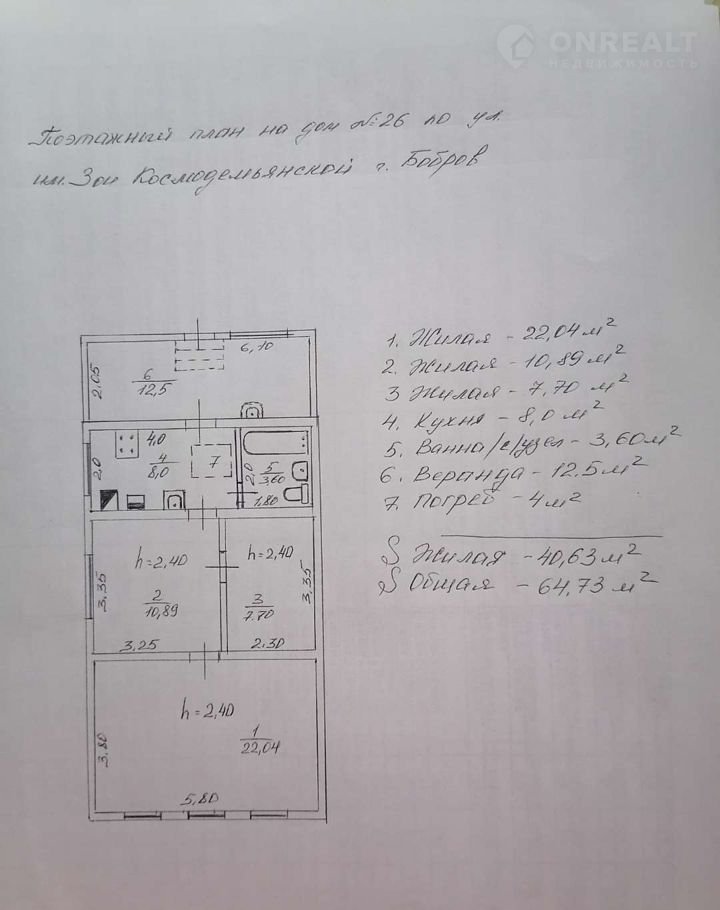 ONREALT
НЕДВИЖИМОСТЬ
Поэтажный план на дом №26 по ул.
им. Зои Космодемьянской г. Бобров
1. Жилая - 22,04 м²
2. Жилая - 10,89 м²
3 Жилая - 7,70 м²
4. Кухня - 8,0 м²
5. Ванна/с/узел - 3,60 м²
6. Веранда - 12,5 м²
7. Погреб - 4 м²
S Жилая - 40,63 м²
S Общая - 64,73 м²
6,10
2,05
6
12,5
4,0
2,0
4
8,0
7
2,0
5
3,60
1,80
h=2,40
h=2,40
3,35
3,35
2
10,89
3
7.70
3,25
2.30
h=2,40
1
22,04
3,80
5,80